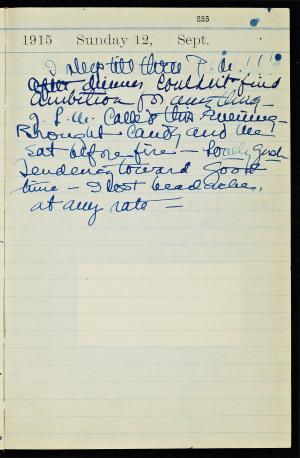 255
1915 Sunday 12, Sept.
I slept till three P.M. !!!
after dinner couldn't find
ambition for anything -
J. P. M. called this evening -
Brought candy and we
sat before fire - Lovely
tendency toward good
time - I lost headache,
at any rate -